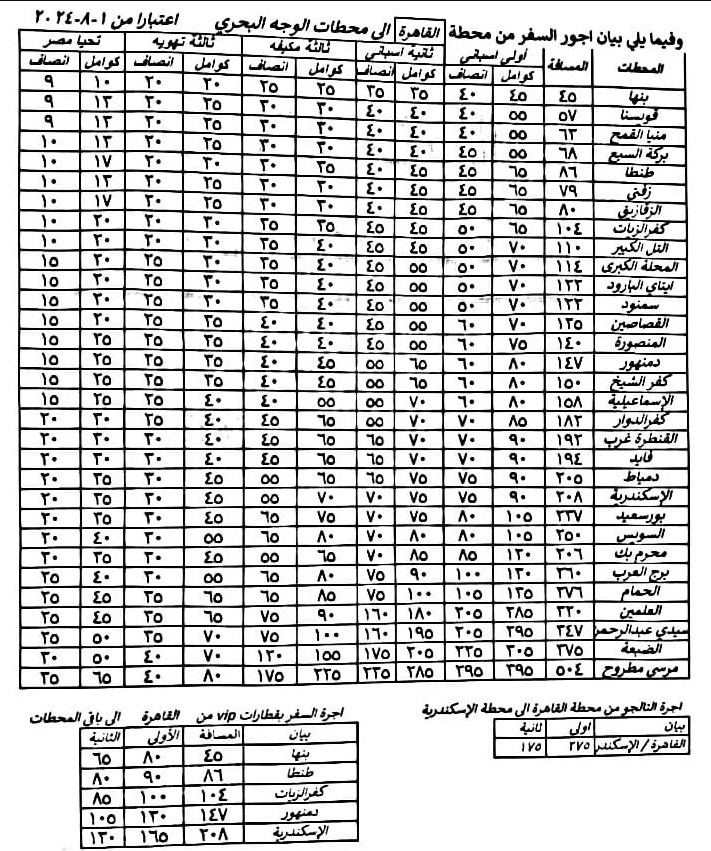 وفيما يلي بيان اجور السفر من محطة القاهرة الى محطات الوجه البحري اعتبارا من ١-٨-٢٠٢٤
المحطات المسافة أولي اسباني ثانية اسباني ثالثة مكيفه ثالثة تهويه تحيا مصر
كوامل انصاف كوامل انصاف كوامل انصاف كوامل انصاف كوامل انصاف
بنها ٤٥ ٤٥ ٤٠ ٣٥ ٣٥ ٢٥ ٢٥ ٢٠ ٢٠ ١٠ ٩
قويسنا ٥٧ ٥٥ ٤٠ ٤٠ ٤٠ ٣٠ ٣٠ ٢٥ ٢٠ ١٣ ٩
منيا القمح ٦٣ ٥٥ ٤٠ ٤٠ ٤٠ ٣٠ ٣٠ ٢٥ ٢٠ ١٣ ٩
بركة السبع ٦٨ ٥٥ ٤٥ ٤٠ ٤٠ ٣٠ ٣٠ ٢٥ ٢٠ ١٣ ١٠
طنطا ٨٦ ٦٥ ٤٥ ٤٥ ٤٠ ٣٠ ٣٠ ٣٠ ٢٠ ١٧ ١٠
زفتى ٧٩ ٦٥ ٤٥ ٤٥ ٤٠ ٣٠ ٣٠ ٢٥ ٢٠ ١٣ ١٠
الزقازيق ٨٠ ٦٥ ٤٥ ٤٥ ٤٠ ٣٠ ٣٠ ٢٥ ٢٠ ١٧ ١٠
كفرالزيات ١٠٤ ٦٥ ٥٠ ٤٥ ٤٥ ٣٥ ٣٥ ٣٠ ٢٠ ٢٠ ١٠
التل الكبير ١١٠ ٧٠ ٥٠ ٤٥ ٤٥ ٤٠ ٣٥ ٣٠ ٢٠ ٢٠ ١٠
المحلة الكبرى ١١٤ ٧٠ ٥٠ ٥٥ ٤٥ ٤٠ ٣٥ ٣٠ ٢٥ ٢٥ ١٥
ايتاي البارود ١٢٢ ٧٠ ٥٠ ٥٥ ٤٥ ٤٠ ٣٥ ٣٥ ٢٥ ٢٠ ١٥
سمنود ١٢٢ ٧٠ ٥٠ ٥٥ ٤٥ ٤٠ ٣٥ ٣٠ ٢٥ ٢٠ ١٥
القصاصين ١٢٥ ٧٠ ٦٠ ٥٥ ٤٥ ٤٠ ٤٠ ٣٥ ٢٥ ٢٠ ١٥
المنصورة ١٤٠ ٧٥ ٦٠ ٥٥ ٤٥ ٤٠ ٤٠ ٣٥ ٢٥ ٢٥ ١٥
دمنهور ١٤٧ ٨٠ ٦٠ ٦٥ ٥٥ ٤٥ ٤٠ ٣٥ ٢٥ ٢٥ ١٥
كفر الشيخ ١٥٠ ٨٠ ٦٠ ٦٥ ٥٥ ٤٥ ٤٠ ٣٥ ٢٥ ٢٥ ١٥
الإسماعيلية ١٥٨ ٨٠ ٦٠ ٧٠ ٥٥ ٥٥ ٤٠ ٤٠ ٢٥ ٢٥ ١٥
كفرالدوار ١٨٢ ٨٥ ٧٠ ٧٠ ٥٥ ٦٥ ٤٥ ٤٠ ٢٥ ٣٠ ٢٠
القنطرة غرب ١٩٢ ٩٠ ٧٠ ٧٠ ٦٥ ٦٥ ٤٥ ٤٠ ٣٠ ٣٠ ٢٠
فايد ١٩٤ ٩٠ ٧٠ ٧٠ ٦٥ ٦٥ ٤٥ ٤٠ ٣٠ ٣٠ ٢٠
دمياط ٢٠٥ ٩٠ ٧٥ ٧٥ ٦٥ ٦٥ ٥٥ ٤٥ ٣٠ ٣٥ ٢٠
الإسكندرية ٢٠٨ ٩٠ ٧٥ ٧٥ ٧٠ ٧٠ ٥٥ ٤٥ ٣٠ ٣٥ ٢٠
بورسعيد ٢٣٧ ١٠٥ ٨٠ ٧٥ ٧٠ ٧٥ ٦٥ ٤٥ ٣٠ ٣٥ ٢٠
السويس ٢٥٠ ١٠٥ ٨٠ ٨٠ ٧٠ ٨٠ ٦٥ ٥٥ ٣٠ ٤٠ ٢٠
محرم بك ٢٠٦ ١٢٠ ٨٥ ٨٥ ٧٠ ٦٥ ٥٥ ٤٥ ٣٠ ٣٥ ٢٠
برج العرب ٢٦٠ ١٢٠ ١٠٠ ٩٠ ٧٥ ٨٠ ٦٥ ٥٥ ٣٠ ٤٠ ٢٥
الحمام ٢٧٦ ١٣٥ ١٠٥ ١٠٠ ٧٥ ٨٥ ٦٥ ٦٥ ٣٥ ٤٥ ٢٥
العلمين ٣٢٠ ٢٨٥ ٢٠٥ ١٨٠ ١٦٠ ٩٠ ٧٥ ٦٥ ٣٥ ٤٥ ٢٥
سيدي عبدالرحمن ٣٤٧ ٢٩٥ ٢٠٥ ١٩٥ ١٦٠ ١٠٠ ٧٥ ٧٠ ٣٥ ٥٠ ٢٥
الضبعة ٣٧٥ ٣٠٥ ٢٢٥ ٢٠٥ ١٧٥ ١٥٥ ١٢٠ ٧٠ ٤٠ ٥٠ ٣٠
مرسي مطروح ٥٠٤ ٣٩٥ ٢٩٥ ٢٨٥ ٢٣٥ ٢٢٥ ١٧٥ ٨٠ ٤٠ ٦٥ ٣٥
اجرة التالجو من محطة القاهرة الى محطة الإسكندرية
بيان اولى ثانية
القاهرة / الإسكندر ٢٧٥ ١٧٥
اجرة السفر بقطارات vip من القاهرة الى باقي المحطات
بيان المسافة الأولى الثانية
بنها ٤٥ ٨٠ ٦٥
طنطا ٨٦ ٩٠ ٨٠
كفرالزيات ١٠٤ ١٠٠ ٨٥
دمنهور ١٤٧ ١٣٠ ١٠٥
الإسكندرية ٢٠٨ ١٦٥ ١٣٠